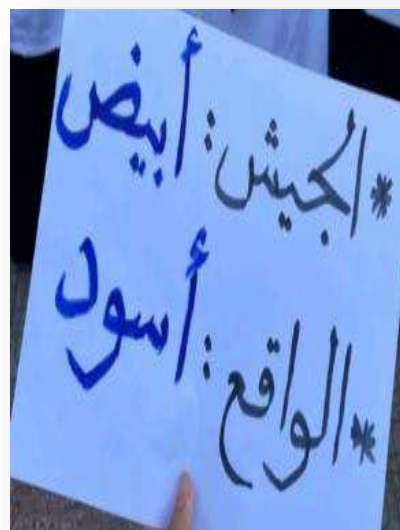 *الجيش: أبيض
*الواقع: أسود